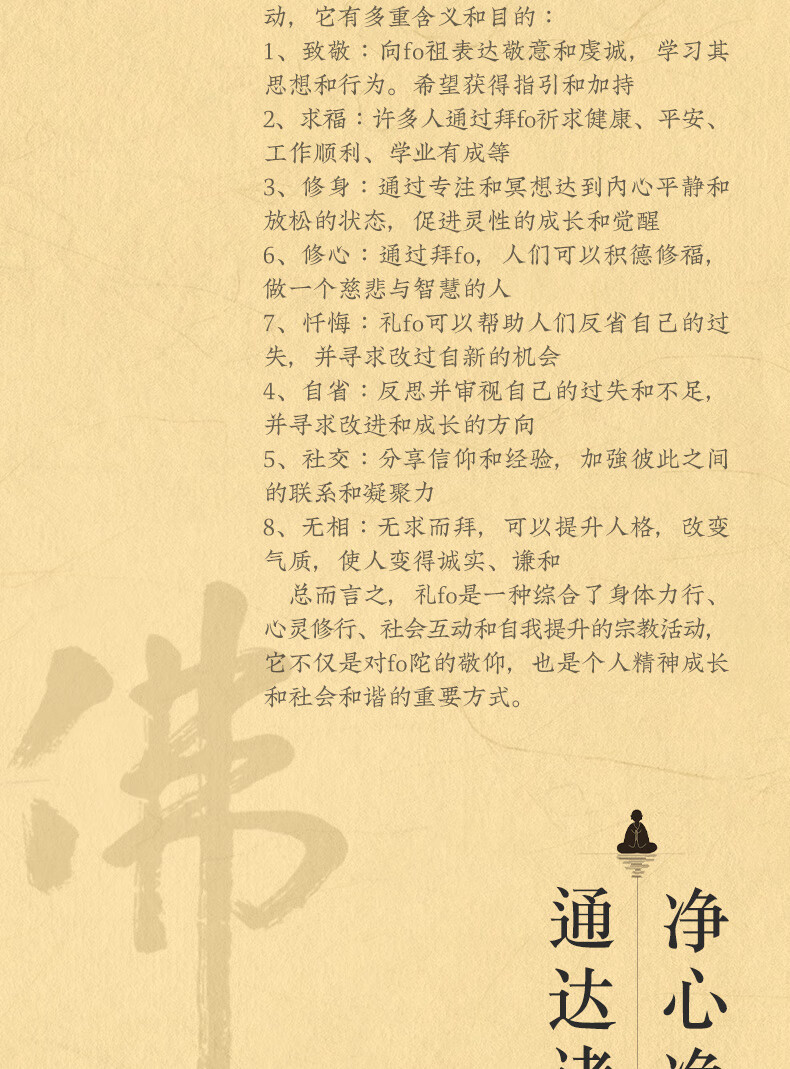 动，它有多重含义和目的：
1、致敬：向fo祖表达敬意和虔诚，学习其
思想和行为。希望获得指引和加持
2、求福：许多人通过拜fo祈求健康、平安、
工作顺利、学业有成等
3、修身：通过专注和冥想达到內心平静和
放松的状态，促进灵性的成长和觉醒
6、修心：通过拜fo，人们可以积德修福，
做一个慈悲与智慧的人
7、忏悔：礼fo可以帮助人们反省自己的过
失，并寻求改过自新的机会
4、自省：反思并审视自己的过失和不足，
并寻求改进和成长的方向
5、社交：分享信仰和经验，加強彼此之间
的联系和凝聚力
8、无相：无求而拜，可以提升人格，改变
气质，使人变得诚实、谦和
总而言之，礼fo是一种综合了身体力行、
心灵修行、社会互动和自我提升的宗教活动，
它不仅是对fo陀的敬仰，也是个人精神成长
和社会和谐的重要方式。
佛
净心净
通达诸